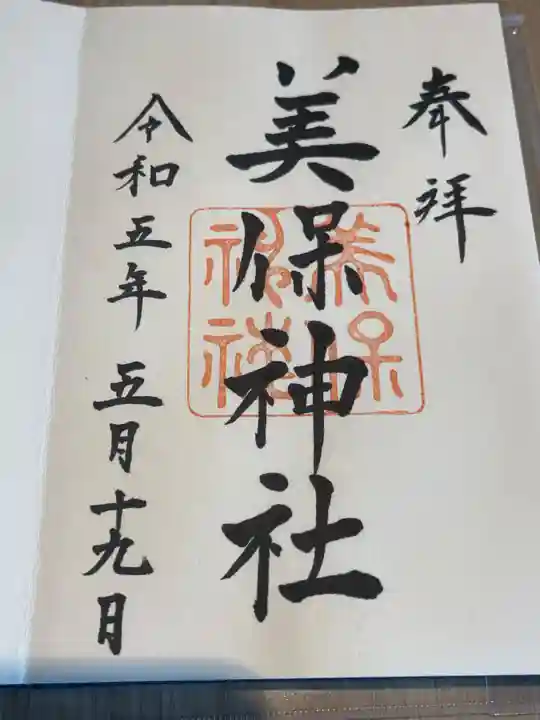 奉拝
美保神社
美保
神社
令和五年五月十九日